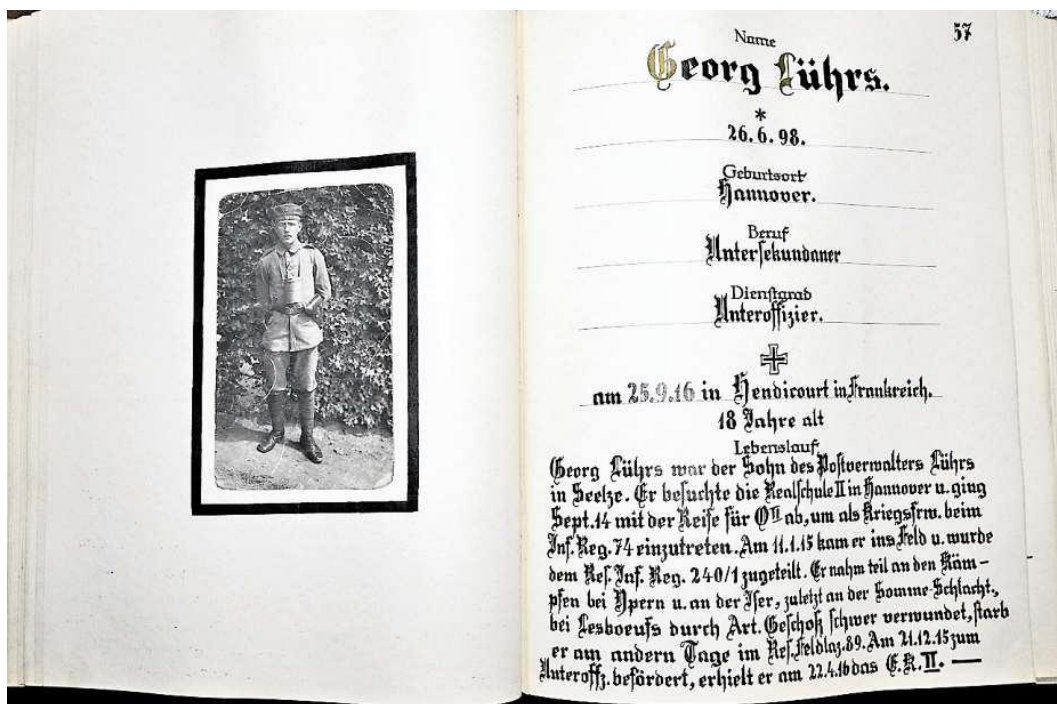 57
Name
Georg Lührs.
*
26.6.98.
Geburtsort
Hannover.
Beruf
Untersekundaner
Dienstgrad
Unteroffizier.
am 25.9.16 in Hendicourt in Frankreich.
18 Jahre alt
Lebenslauf
Georg Lührs war der Sohn des Postverwalters Lührs
in Seelze. Er besuchte die Realschule II in Hannover u. ging
Sept.14 mit der Reife für OII ab, um als Kriegsfrw. beim
Inf. Reg. 74 einzutreten. Am 11.1.15 kam er ins Feld u. wurde
dem Res. Inf. Reg. 240/1 zugeteilt. Er nahm teil an den Käm-
pfen bei Ypern u. an der Iser, zuletzt an der Somme-Schlacht,
bei Lesboeufs durch Art. Geschoß schwer verwundet, starb
er am andern Tage im Res. Feldlaz. 89. Am 21.12.15 zum
Unteroffz. befördert, erhielt er am 22.4.16 das E.K. II. —